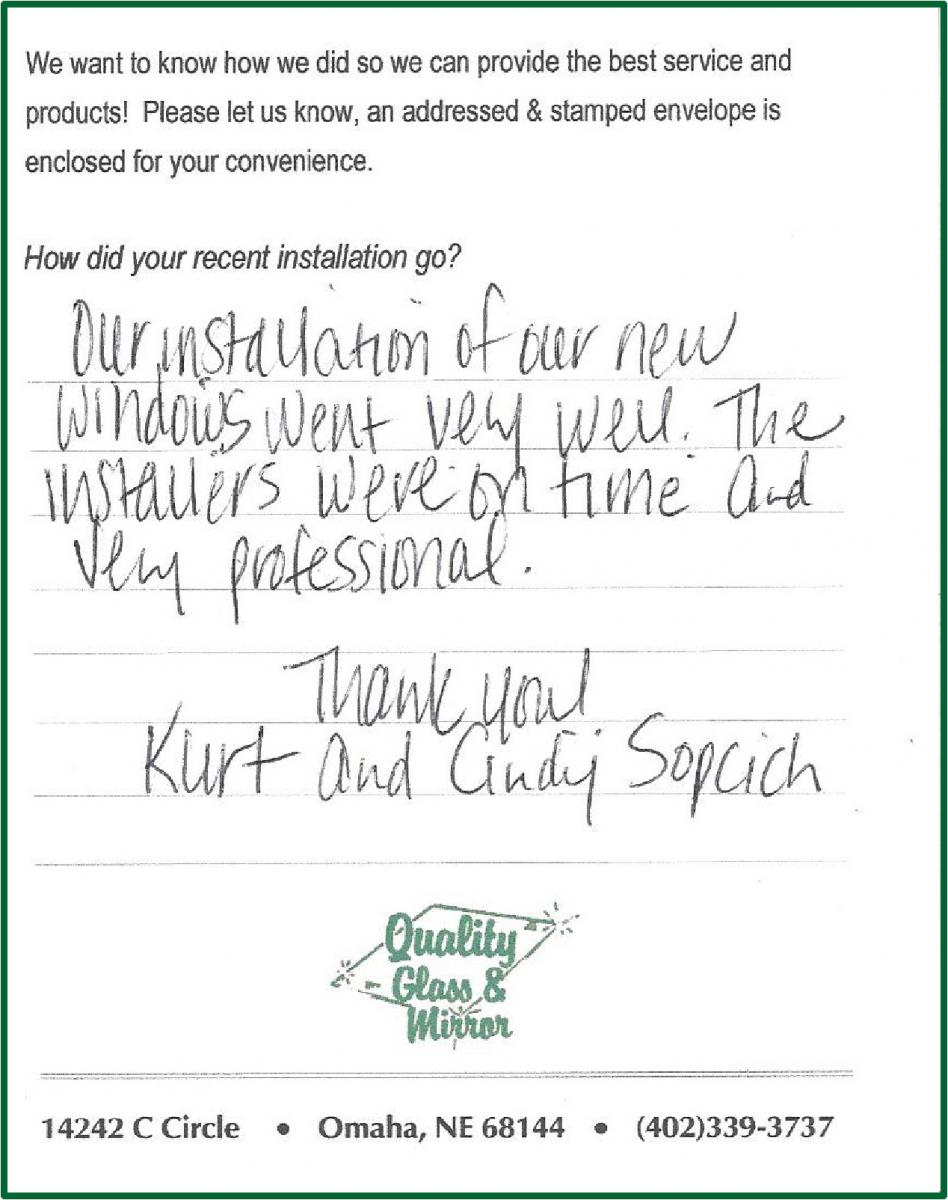 We want to know how we did so we can provide the best service and
products! Please let us know, an addressed & stamped envelope is
enclosed for your convenience.
How did your recent installation go?
Our installation of our new
windows went very well. The
installers were on time and
very professional.
Thank you!
Kurt and Cindy Sopcich
Quality
Glass &
Mirror
14242 C Circle • Omaha, NE 68144 • (402)339-3737